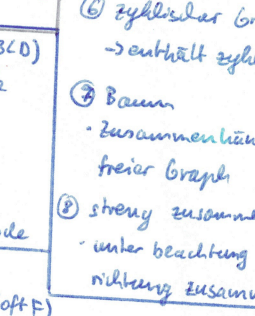 ⑥ zyklischer Gr
→ enthält zykl
BCD)
⑦ Baum
· Zusammenhän
freier Graph
⑧ streng zusamme
· unter beachtung
richtung zusamm
oft F)